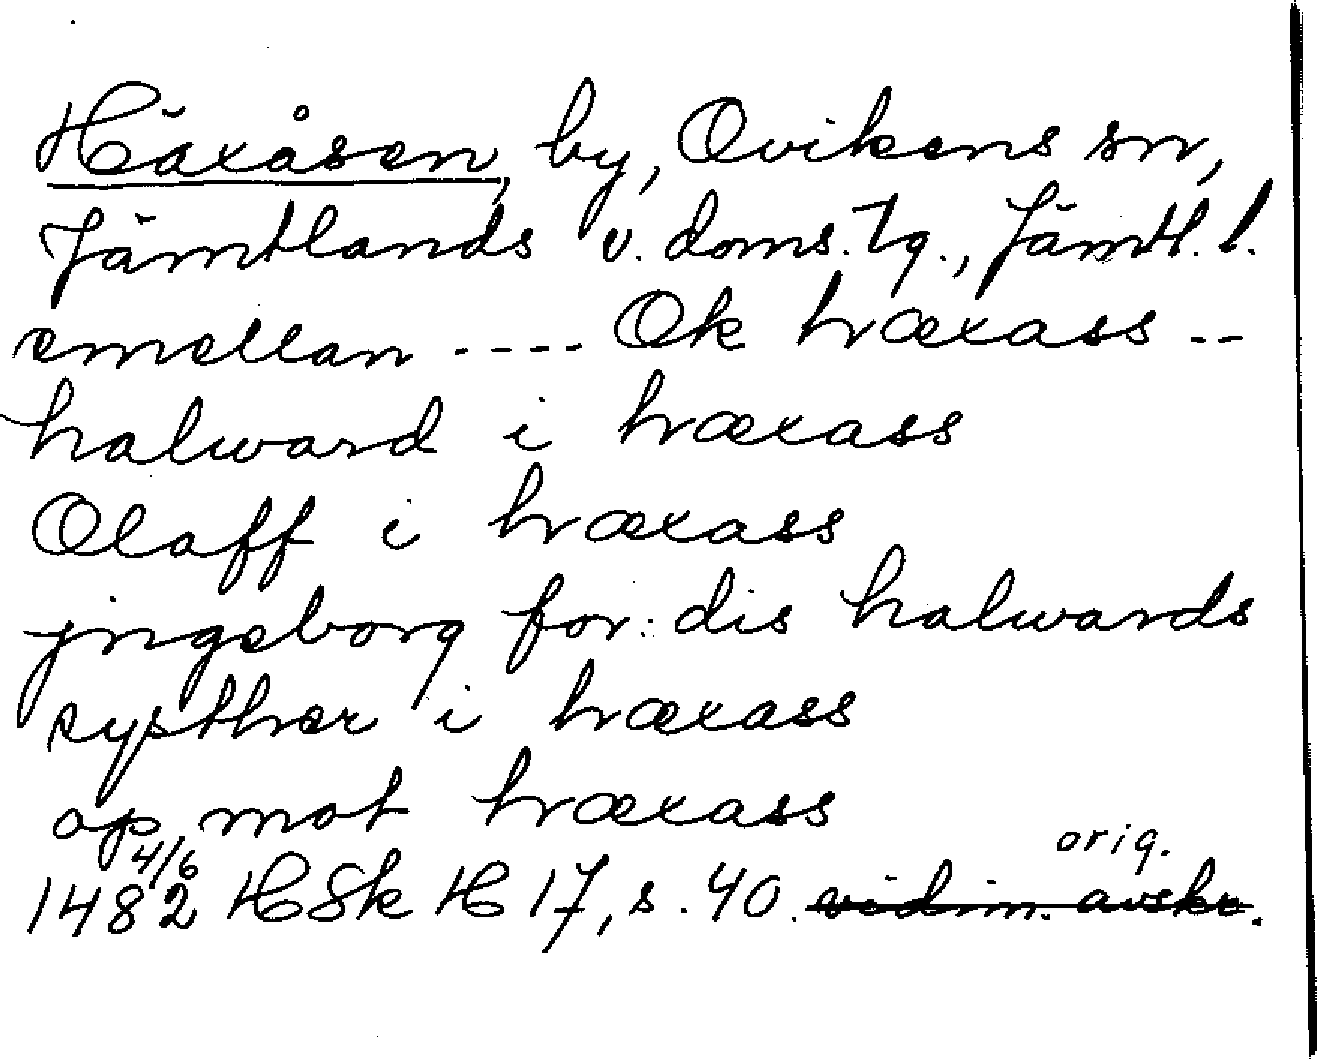 Häxåsen, by, Ovikens sn,
Jämtlands v. doms. Tg., Jämtl. l.
emellan ---- Ok hæxass --
halward i hæxass
Olaff i hæxass
jngeborg for: dis halwards
systher i hæxass
op mot hæxass
4/6 orig.
1482 HSk H 17, s. 40. vidim. avskr.